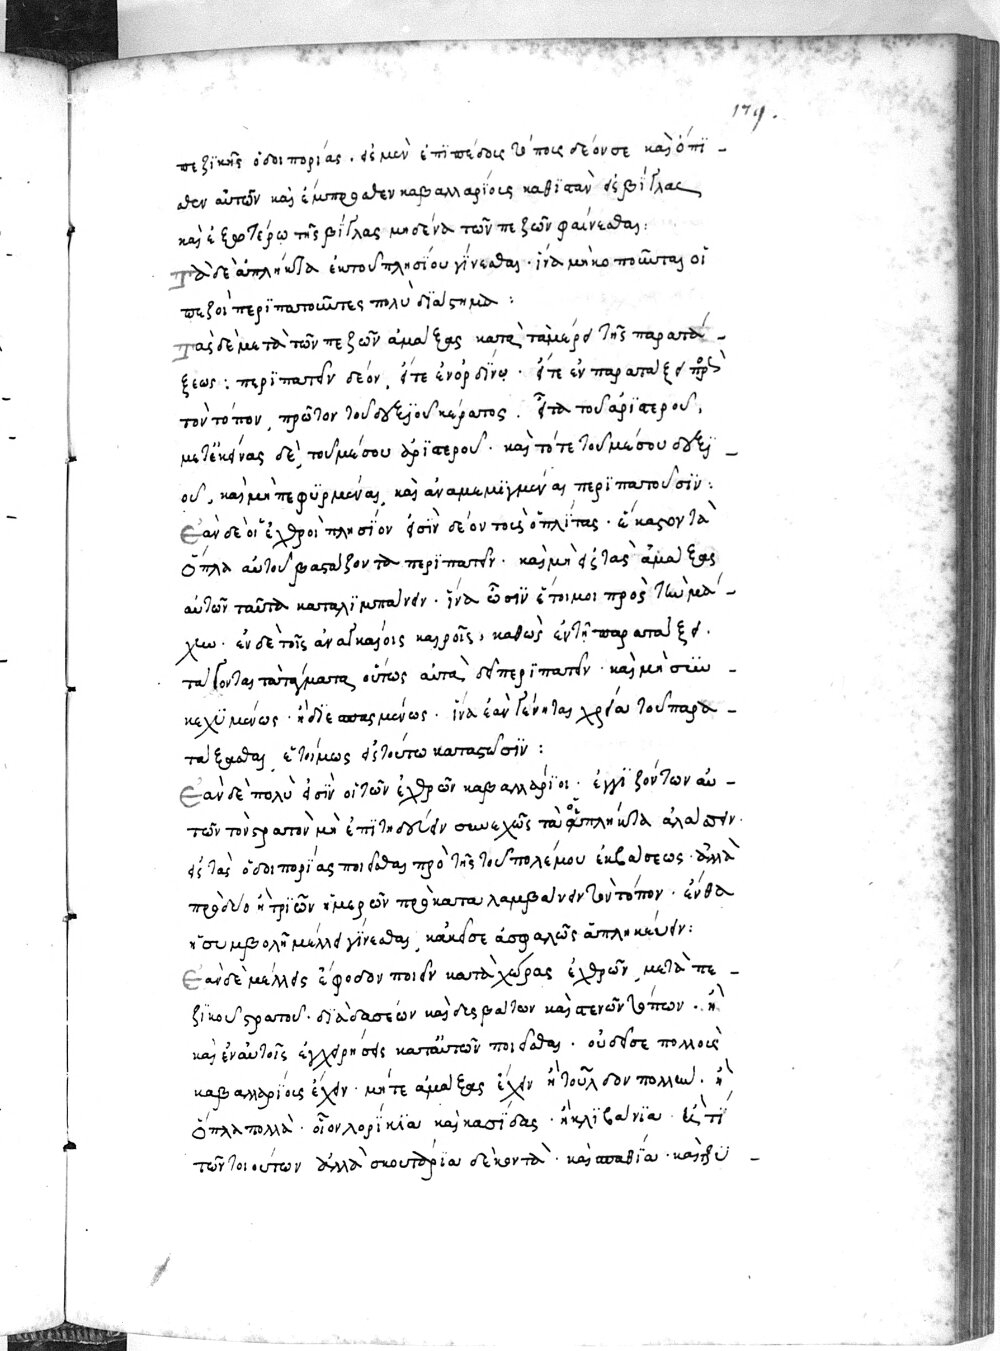 179.
πεζικῆς ὁδοιπορίας. ἐὰν μὲν ἐπιπέδοις τόποις δέον σε καὶ ὄπι-
σθεν αὐτῶν καὶ ἔμπροσθεν καβαλλαρίοις καθιστᾶν εἰς βίγλας
καὶ ἐξωτέρω τῆς βίγλας μηδένα τῶν πεζῶν φαίνεσθαι:
Τὰ δὲ ἄπληκτα ἐκ τοῦ πλησίου γίνεσθαι. ἵνα μὴ κοποῦνται οἱ
πεζοὶ περιπατοῦντες πολὺ διάστημα:
Τὰς δὲ μετὰ τῶν πεζῶν ἁμάξας κατὰ τὰ μέρει τῆς παρατά-
ξεως: περιπατεῖν δέον, εἴτε ἐν ὀρδίνῳ. εἴτε ἐν παρατάξει πρὸς
τὸν τόπον, πρῶτον τοῦ δεξιοῦ κέρατος. εἶτα τοῦ ἀριστεροῦ,
μετ' ἐκείνας δὲ, τοῦ μέσου ἀριστεροῦ. καὶ τότε τοῦ μέσου δεξι-
οῦ, καὶ μὴ πεφυρμέναι, καὶ ἀναμεμιγμέναι περιπατοῦσιν:
Ἐὰν δὲ οἱ ἐχθροὶ πλησίον εἰσὶν δέον τοὺς ὁπλίτας. ἕκαστον τὰ
ὅπλα αὐτοῦ βαστάζοντα περιπατεῖν. καὶ μὴ εἰς τὰς ἁμάξας
αὐτῶν ταῦτα καταλιμπάνειν. ἵνα ὦσιν ἕτοιμοι πρὸς τὴν μά-
χην. ἐν δὲ τοῖς ἀναγκαίοις καιροῖς, καθὼς ἐν τῇ παρατάξει.
τάσσονται τὰ τάγματα οὕτως αὐτὰ δεῖ περιπατεῖν. καὶ μὴ συγ-
κεχυμένως. ἢ διεσπασμένως. ἵνα ἐὰν γένηται χρεία τοῦ παρα-
τάξασθαι, ἑτοίμως εἰς τοῦτο καταστῶσιν:
Ἐὰν δὲ πολὺ εἰσὶν οἱ τῶν ἐχθρῶν καβαλλάριοι. ἐγγιζόντων αὐ-
τῶν τὸν στρατὸν μὴ ἐπιτηδεύειν συνεχῶς τὰ ἄπληκτα ἀλάσσειν.
εἰς τὰς ὁδοιπορίας ποιεῖσθαι πρὸ τῆς τοῦ πολέμου ἐκβάσεως. ἀλλὰ
πρὸ δύο ἢ τριῶν ἡμερῶν προκαταλαμβάνειν τὸν τόπον. ἔνθα
ἡ συμβολὴ μέλλει γίνεσθαι, κἀκεῖσε ἀσφαλῶς ἀπληκεύειν:
Ἐὰν δὲ μέλλεις ἔφοδον ποιεῖν κατὰ χώρας ἐχθρῶν, μετὰ πε-
ζικοῦ στρατοῦ. διὰ δασέων καὶ δυσβάτων καὶ στενῶν τόπων. ἢ
καὶ ἐν αὐτοῖς ἐγχειρήσεις κατ' αὐτῶν ποιεῖσθαι. οὐ δεῖ σε πολλοὺς
καβαλλαρίους ἔχειν. μήτε ἁμάξας ἔχειν ἢ τοῦλδον πολλὺν. ἢ
ὅπλα πολλὰ. οἷον λορίκια καὶ κασίδας. ἢ κλιβάνια. εἴ τι
τῶν τοιούτων ἀλλὰ σκουτάρια δέκοντα. καὶ σπαθία. καὶ ξυ-